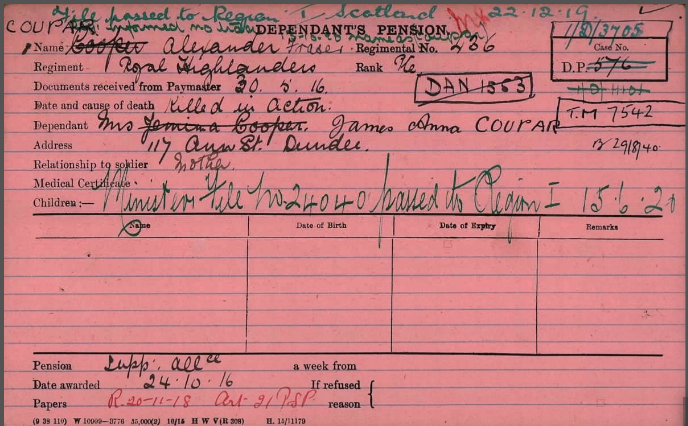 File passed to Region I Scotland 22.12.19
COUPAR
DEPENDANT'S PENSION.
1/D/3705
Name Cooper Alexander Fraser. Regimental No. 256
Case No.
Regiment Royal Highlanders Rank Pte
D.P. 576
Documents received from Paymaster 30. 5. 16.
DAN 1553
Date and cause of death Killed in Action.
T.M 7542
Dependant Mrs Jemima Cooper. James Anna COUPAR
Address 117 Ann St. Dundee.
29/8/40
Relationship to soldier Mother
Medical Certificate
Children:— Minister File No 24040 passed to Region I 15.6.20
Name Date of Birth Date of Expiry Remarks
Pension Supp: Allce a week from
Date awarded 24.10.16 If refused
Papers R. 20-11-18 Art 21 PSP. reason
(9 38 110) W 10900—3776 35,000(2) 10/15 H W V(R 308) H. 15/1179